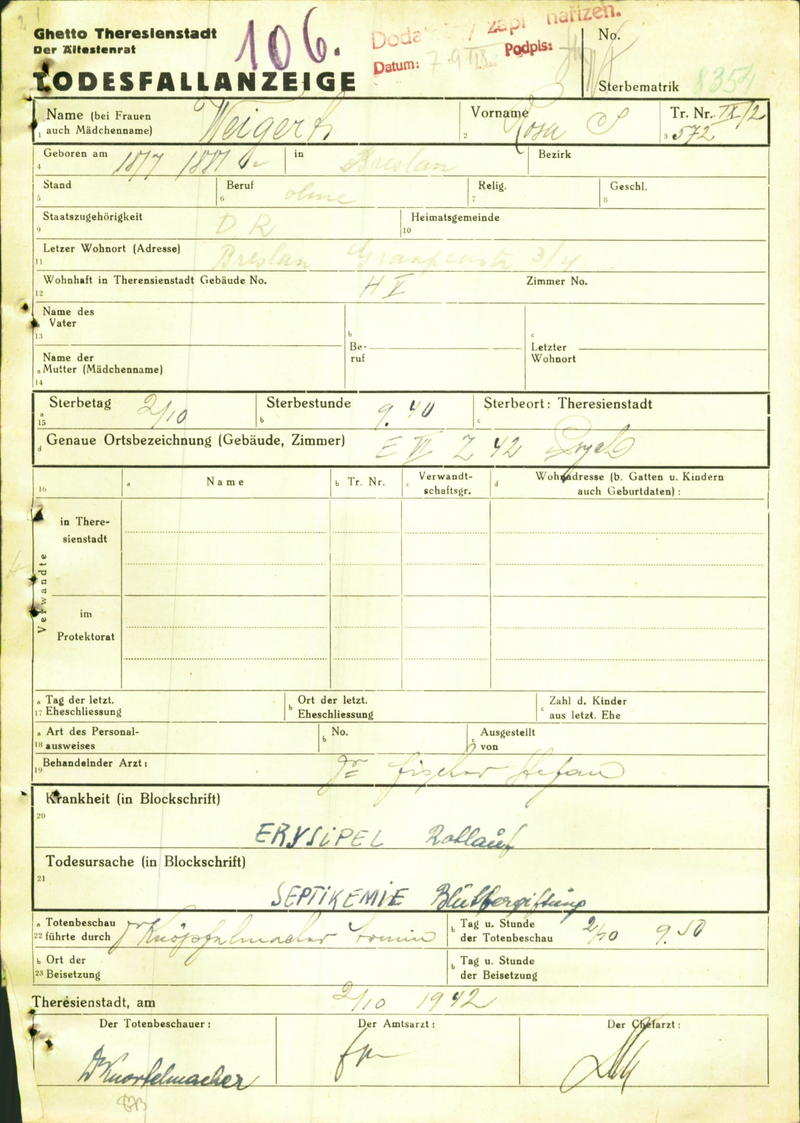 Ghetto Theresienstadt
Der Ältestenrat
TODESFALLANZEIGE
106.
Datum: 7.9. Podpis:
No.
Sterbematrik 8354
Name (bei Frauen auch Mädchenname) Weigert
1
Vorname Rosa S
2
Tr. Nr. IX/2
3 572
Geboren am 18/7 1881 in Breslau Bezirk
4
Stand Beruf ohne Relig. Geschl.
5 6 7 8
Staatszugehörigkeit D R Heimatsgemeinde
9 10
Letzer Wohnort (Adresse) Breslau Graupenstr 3/4
11
Wohnhaft in Therensienstadt Gebäude No. H V Zimmer No.
12
Name des
Vater
13
Name der
a Mutter (Mädchenname)
14
b
Be-
ruf
c
Letzter
Wohnort
Sterbetag 2/10 Sterbestunde 9.40 Sterbeort: Theresienstadt
a 15 b c
d Genaue Ortsbezeichnung (Gebäude, Zimmer) E VI Z 42
16 a Name b Tr. Nr. c Verwandt-
schaftsgr. d Wohnadresse (b. Gatten u. Kindern
auch Geburtdaten) :
Verwandte
in There-
sienstadt
im
Protektorat
a Tag der letzt.
17 Eheschliessung
b Ort der letzt.
Eheschliessung
c Zahl d. Kinder
aus letzt. Ehe
a Art des Personal-
18 ausweises
b No.
c Ausgestellt
von
Behandelnder Arzt: Dr Fischer Stefan
19
Krankheit (in Blockschrift)
20
ERYSIPEL Rotlauf
Todesursache (in Blockschrift)
21
SEPTIKEMIE Blutvergiftung
a Totenbeschau
22 führte durch Dr Knöpfelmacher
b Tag u. Stunde
der Totenbeschau 2/10 9.50
b Ort der
23 Beisetzung
b Tag u. Stunde
der Beisetzung
Theresienstadt, am 2/10 1942
Der Totenbeschauer: Der Amtsarzt: Der Chefarzt: